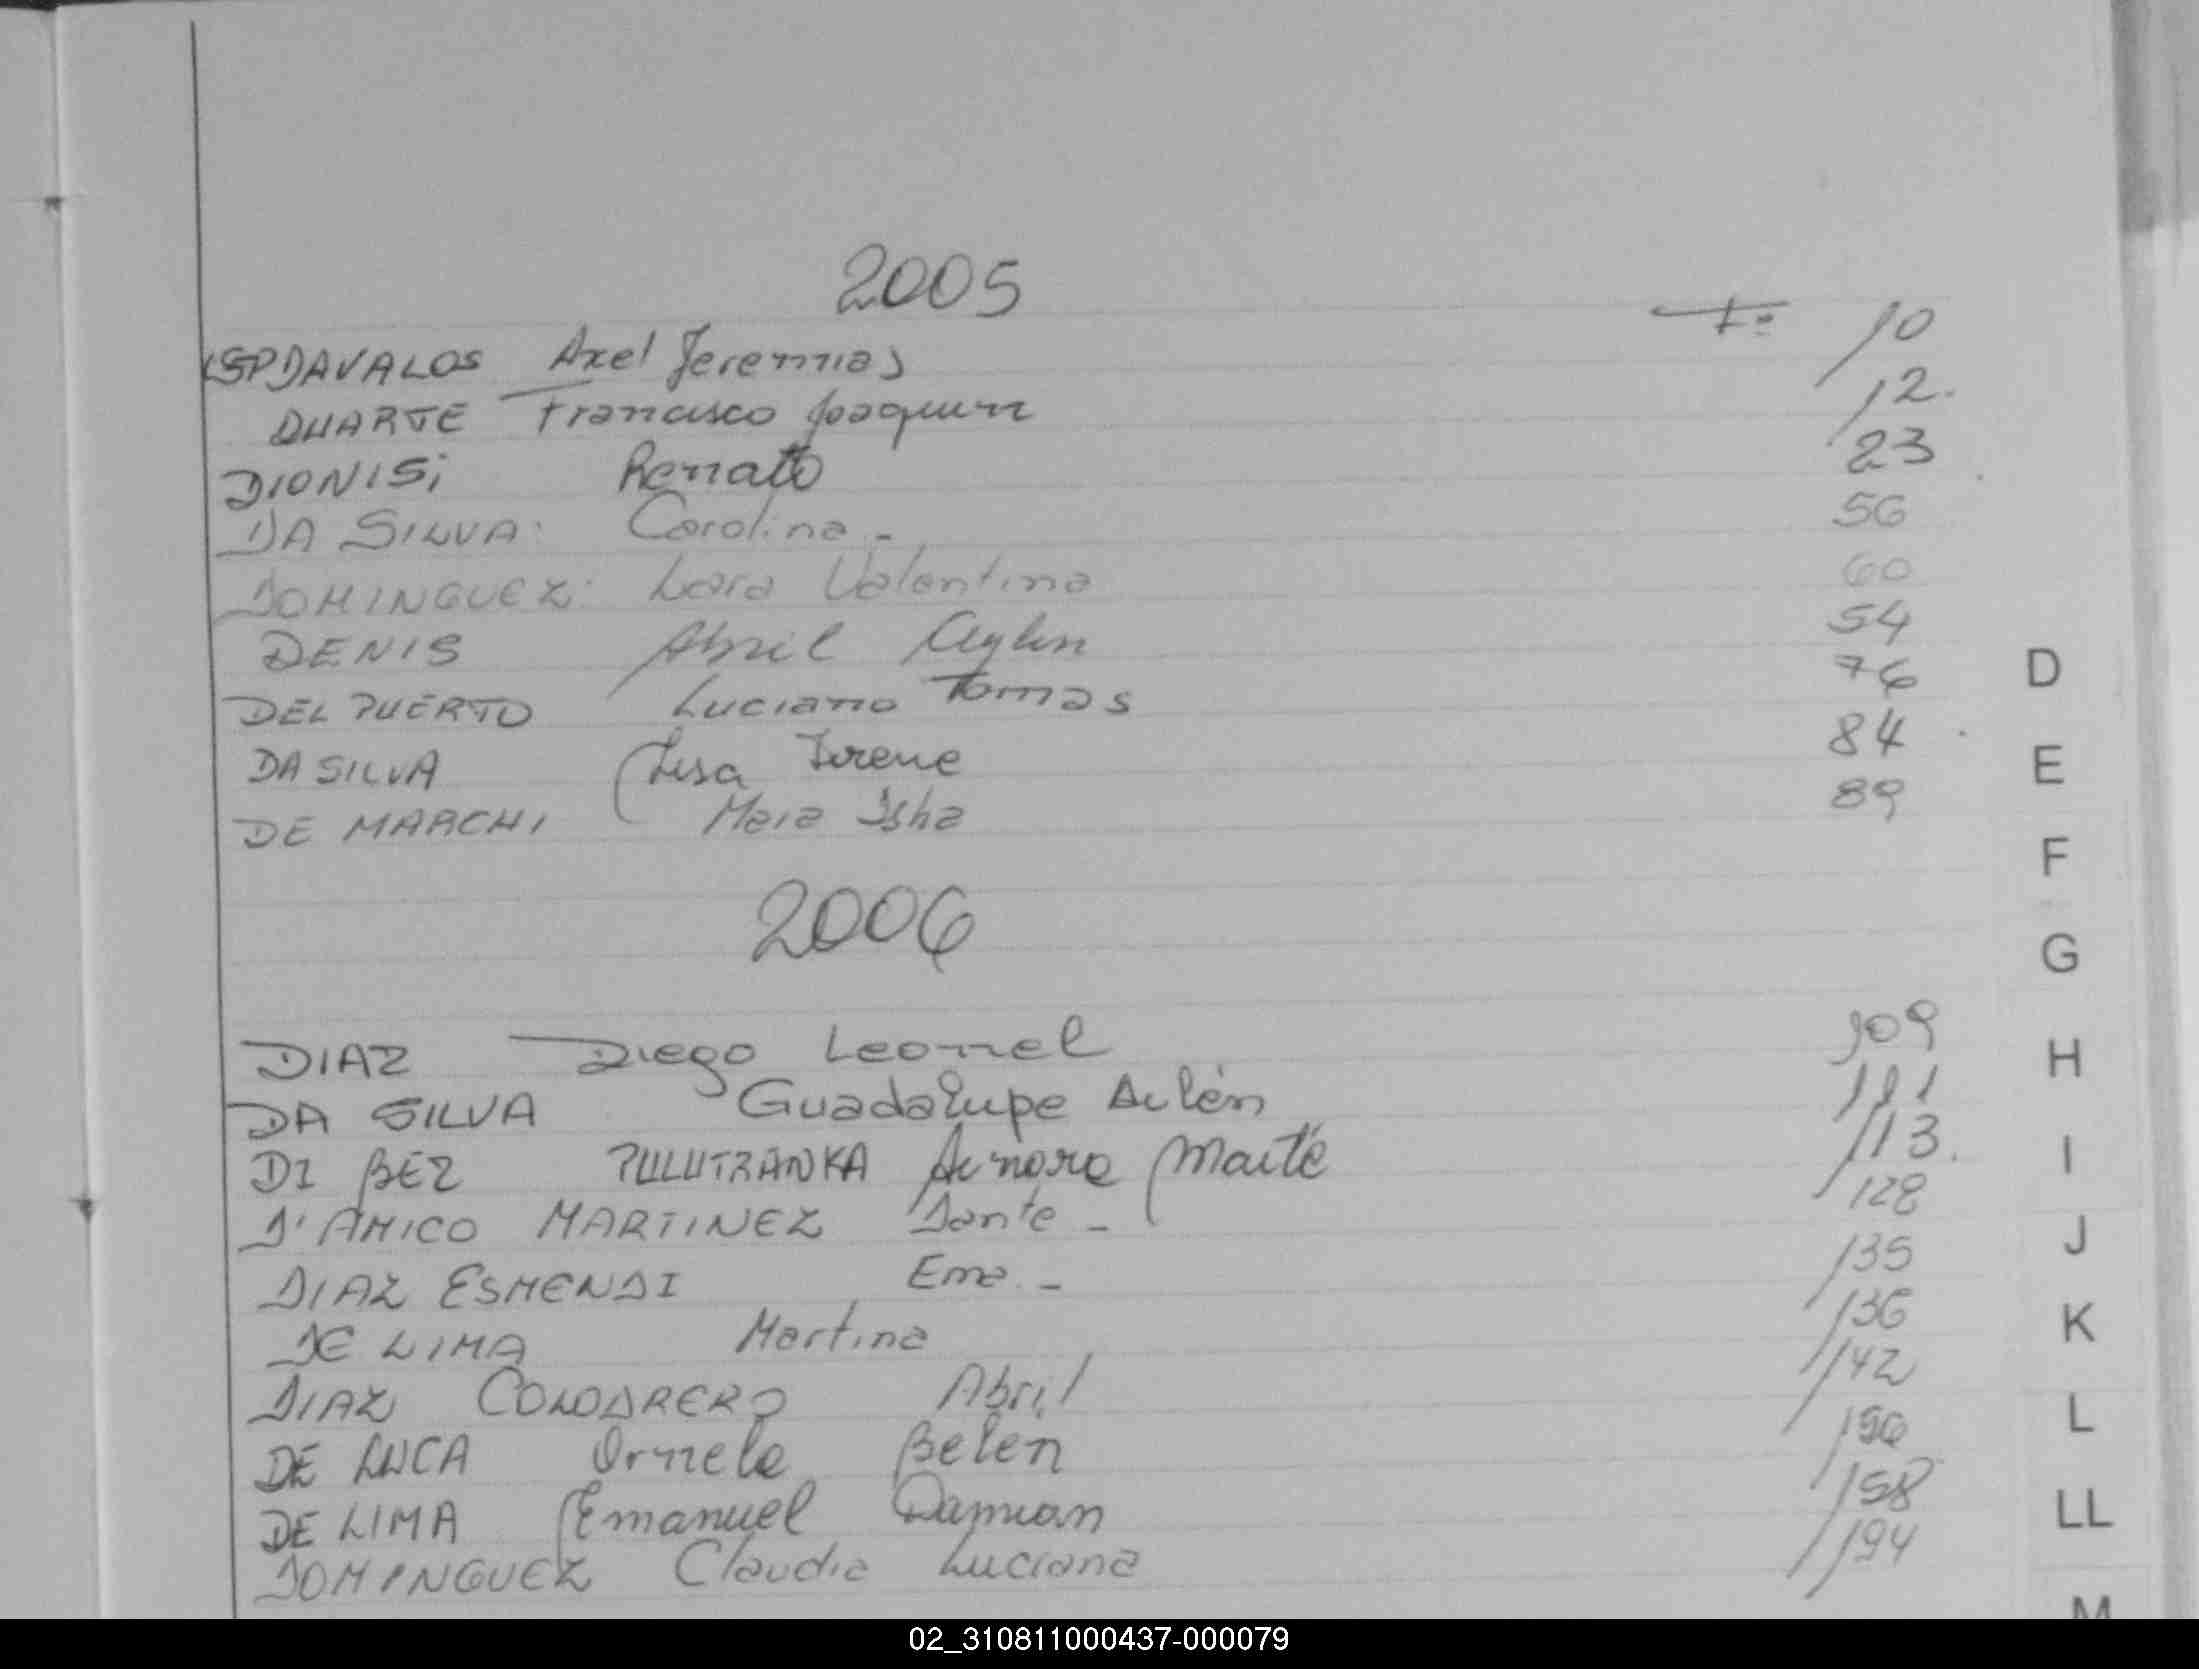 2005
DAVALOS Axel Jeremias F= 10
DUARTE Francisco Joaquin 12.
DIONISi Renato 23
DA SILVA: Carolina - 56
DOMINGUEZ: Lara Valentina 60
DENIS Abril Aylen 54
DEL PUERTO Luciano Tomas 76
DA SILVA Lisa Irene 84
DE MARCHI Maia Isha 89
2006
DIAZ Diego Leonel 109
DA SILVA Guadalupe Ailén 111
DI BEZ PULUTRANKA Ainara Maité 113.
D'AMICO MARTINEZ Dante - 128
DIAZ ESMENDI Ema. - 135
DE LIMA Martina 136
DIAZ COLODRERO Abril 142
DE LUCA Ornela Belén
DE LIMA Emanuel Damian 158
DOMINGUEZ Claudia Luciana 194
D
E
F
G
H
I
J
K
L
LL
M
02_310811000437-000079